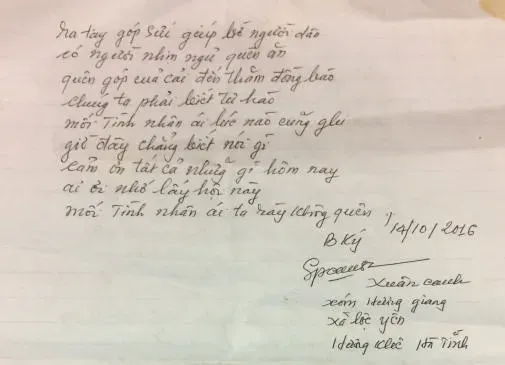 ra tay góp sứi giúp bề người dân
có người nhịn ngủ quên ăn
quên góp của cải đến thăm đồng bào
chúng ta phải biết tự hào
mối Tình nhân ái lúc nào cũng ghi
giờ đây chẳng biết nói gì
cảm ơn tất cả những gì hôm nay
ai ơi nhớ lấy hội này
mối Tình nhân ái ta rày không quên
14/10/2016
B Ký
Xuân canh
xóm Hương giang
xã lộc yên
Hương Khê Hà Tĩnh